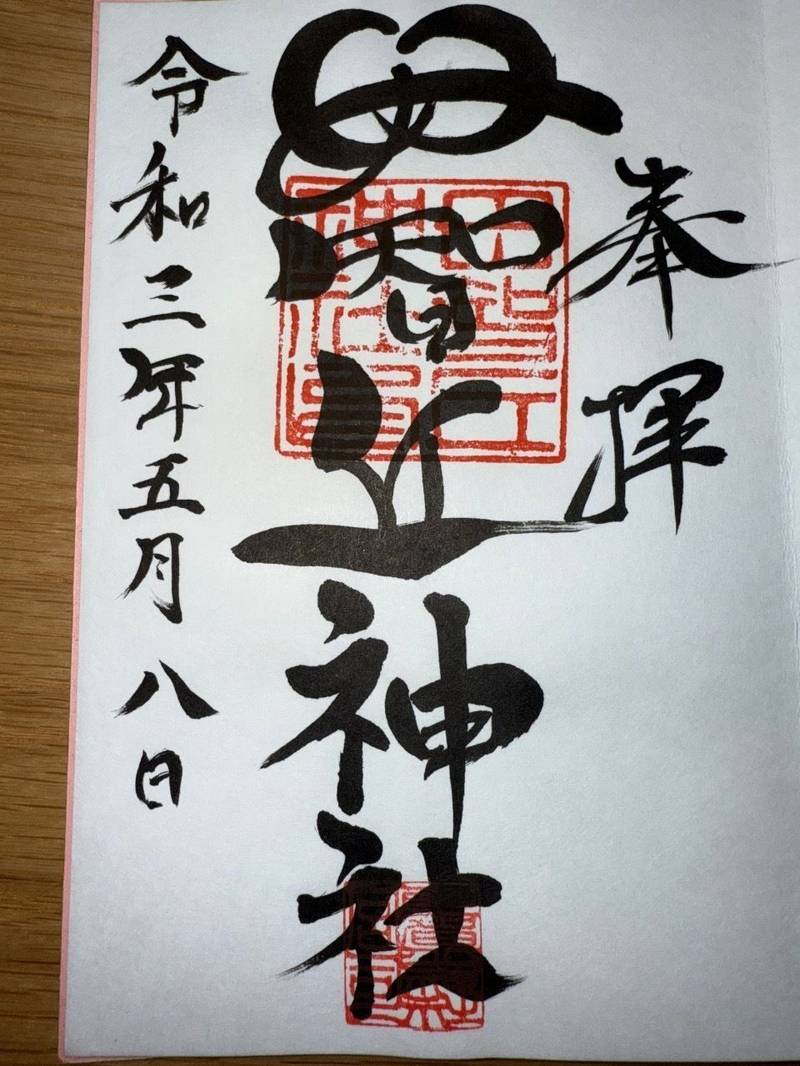 奉拝
智近神社
令和三年五月八日